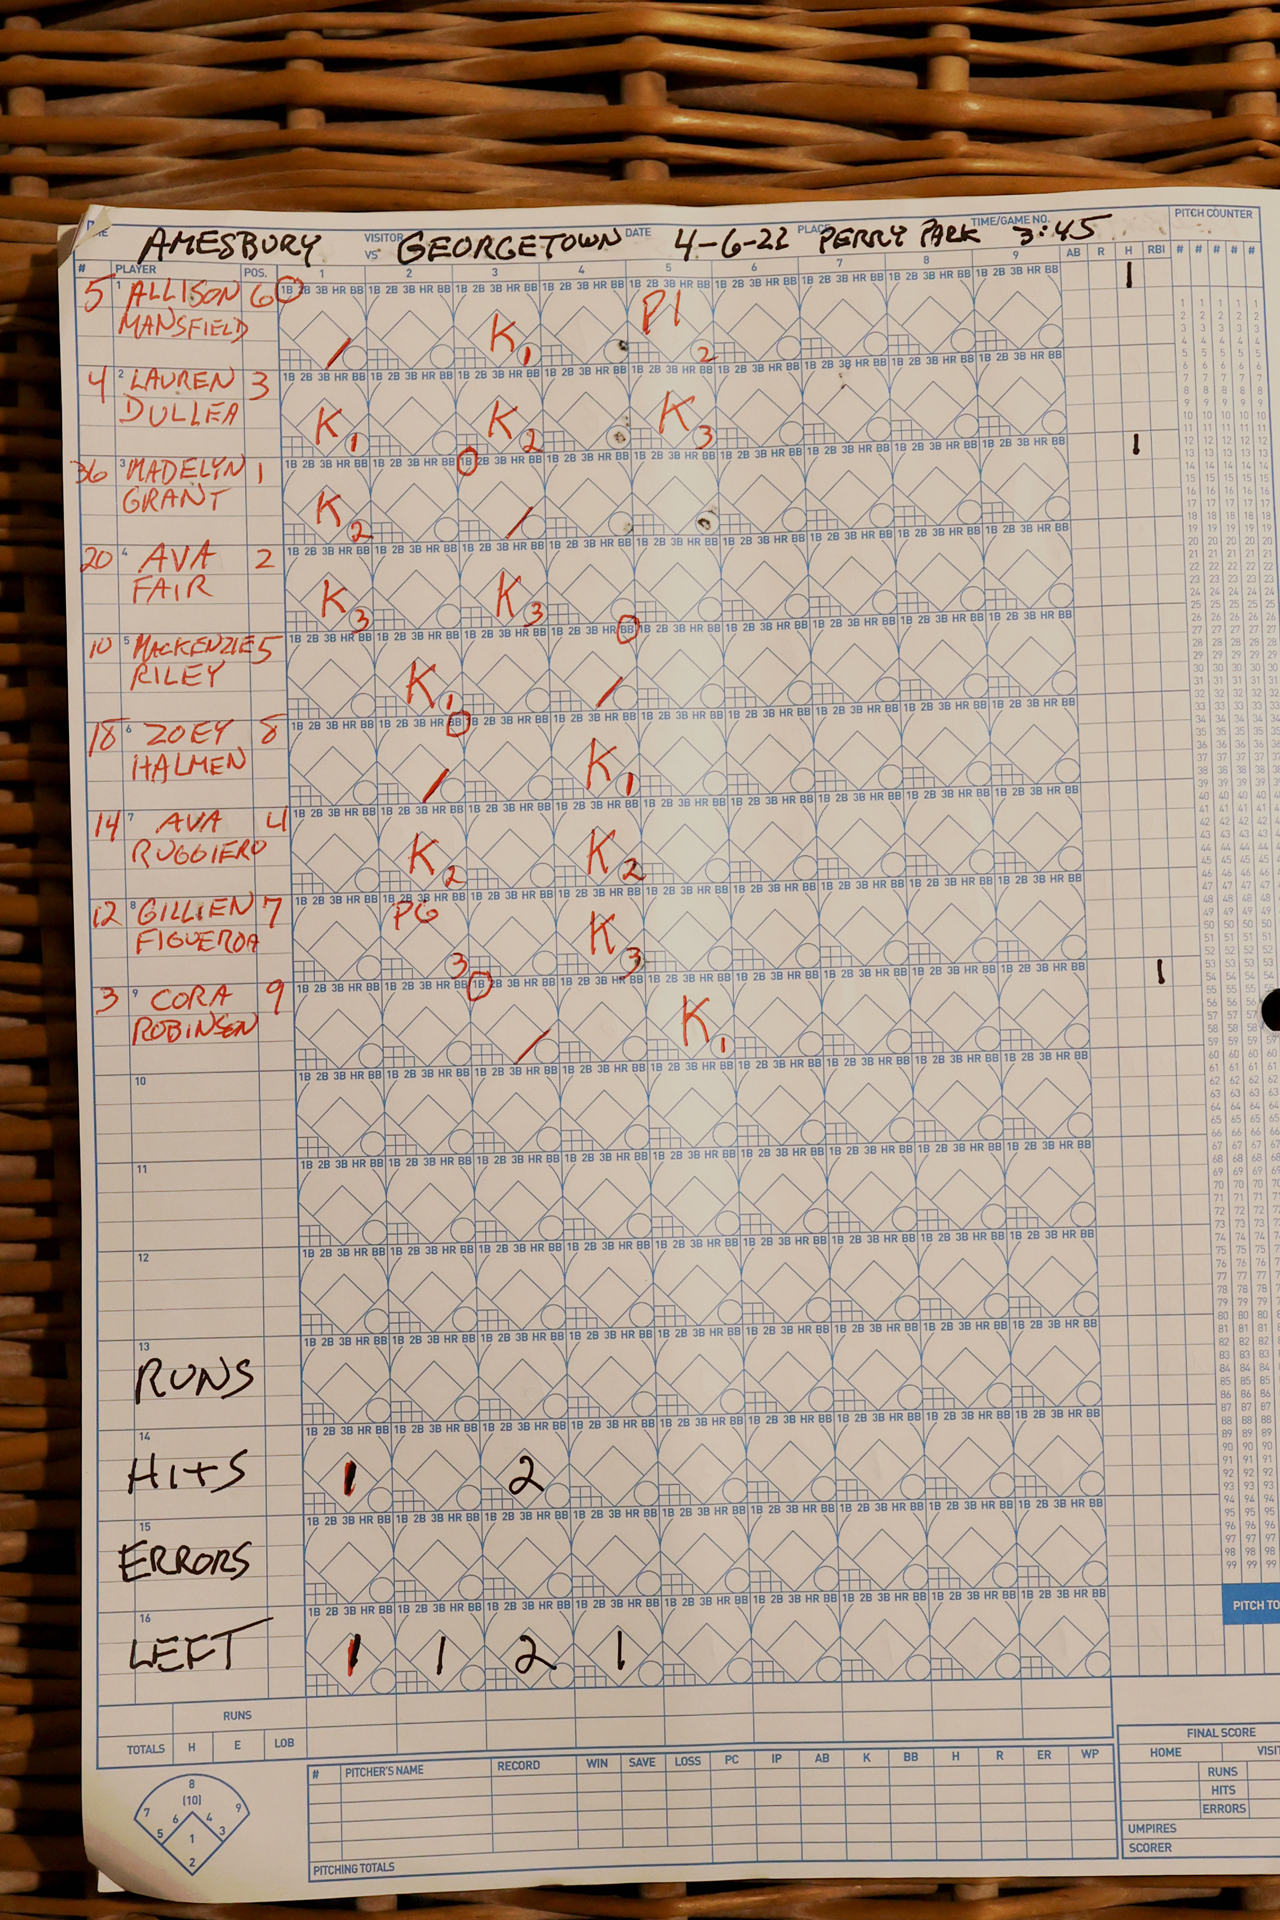 AMESBURY VISITOR VS GEORGETOWN DATE 4-6-22 PLACE PERRY PARK TIME/GAME NO. 3:45 PITCH COUNTER
# PLAYER POS. 1 2 3 4 5 6 7 8 9 AB R H RBI # # # # #
5 1 ALLISON 6 1
MANSFIELD K 1 P1 2
4 2 LAUREN 3
DULLEA K 1 K 2 K 3
36 3 MADELYN 1 1
GRANT K 2
20 4 AVA 2
FAIR K 3 K 3
10 5 MACKENZIE 5
RILEY K 1
18 6 ZOEY 8
HALMEN K 1
14 7 AVA 4
RUGGIERO K 2 K 2
12 8 GILLIEN 7 P6
FIGUEROA 3 K 3
3 9 CORA 9 1
ROBINSON K 1
10
11
12
13
RUNS
14
HITS 1 2
15
ERRORS
16
LEFT 1 1 2 1
PITCH TO
RUNS
TOTALS H E LOB
# PITCHER'S NAME RECORD WIN SAVE LOSS PC IP AB K BB H R ER WP
PITCHING TOTALS
FINAL SCORE
HOME VISIT
RUNS
HITS
ERRORS
UMPIRES
SCORER
8
(10)
7 6 4 9
5 1 3
2